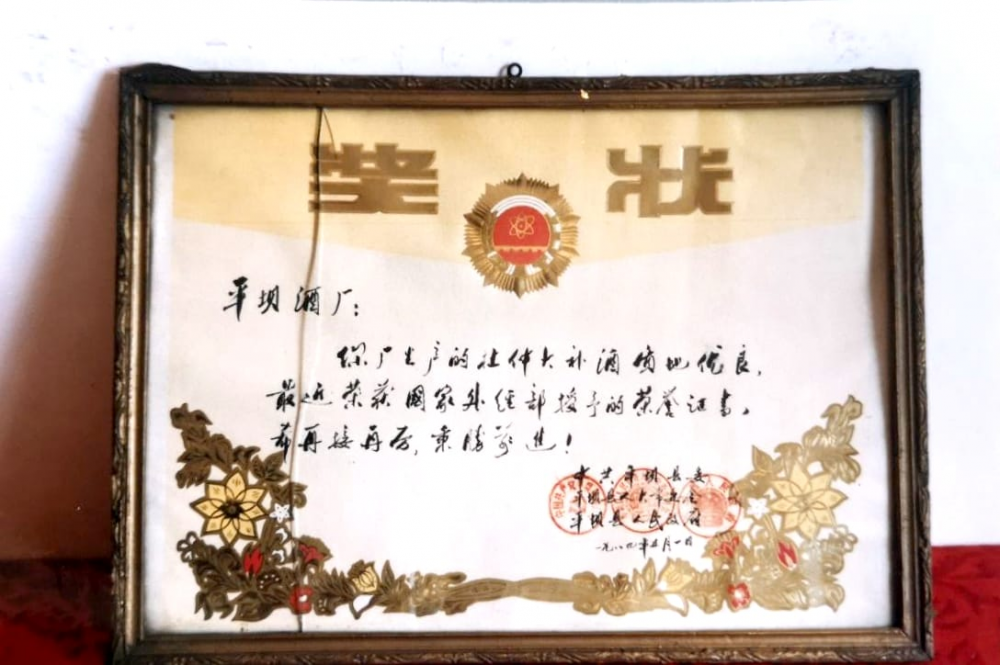 奖状
平坝酒厂：
你厂生产的杜仲大补酒质地优良，
最近荣获国家外经部授予的荣誉证书，
希再接再厉，乘勝前进！
中共平坝县委
平坝县人大常委会
平坝县人民政府
一九八九年五月一日